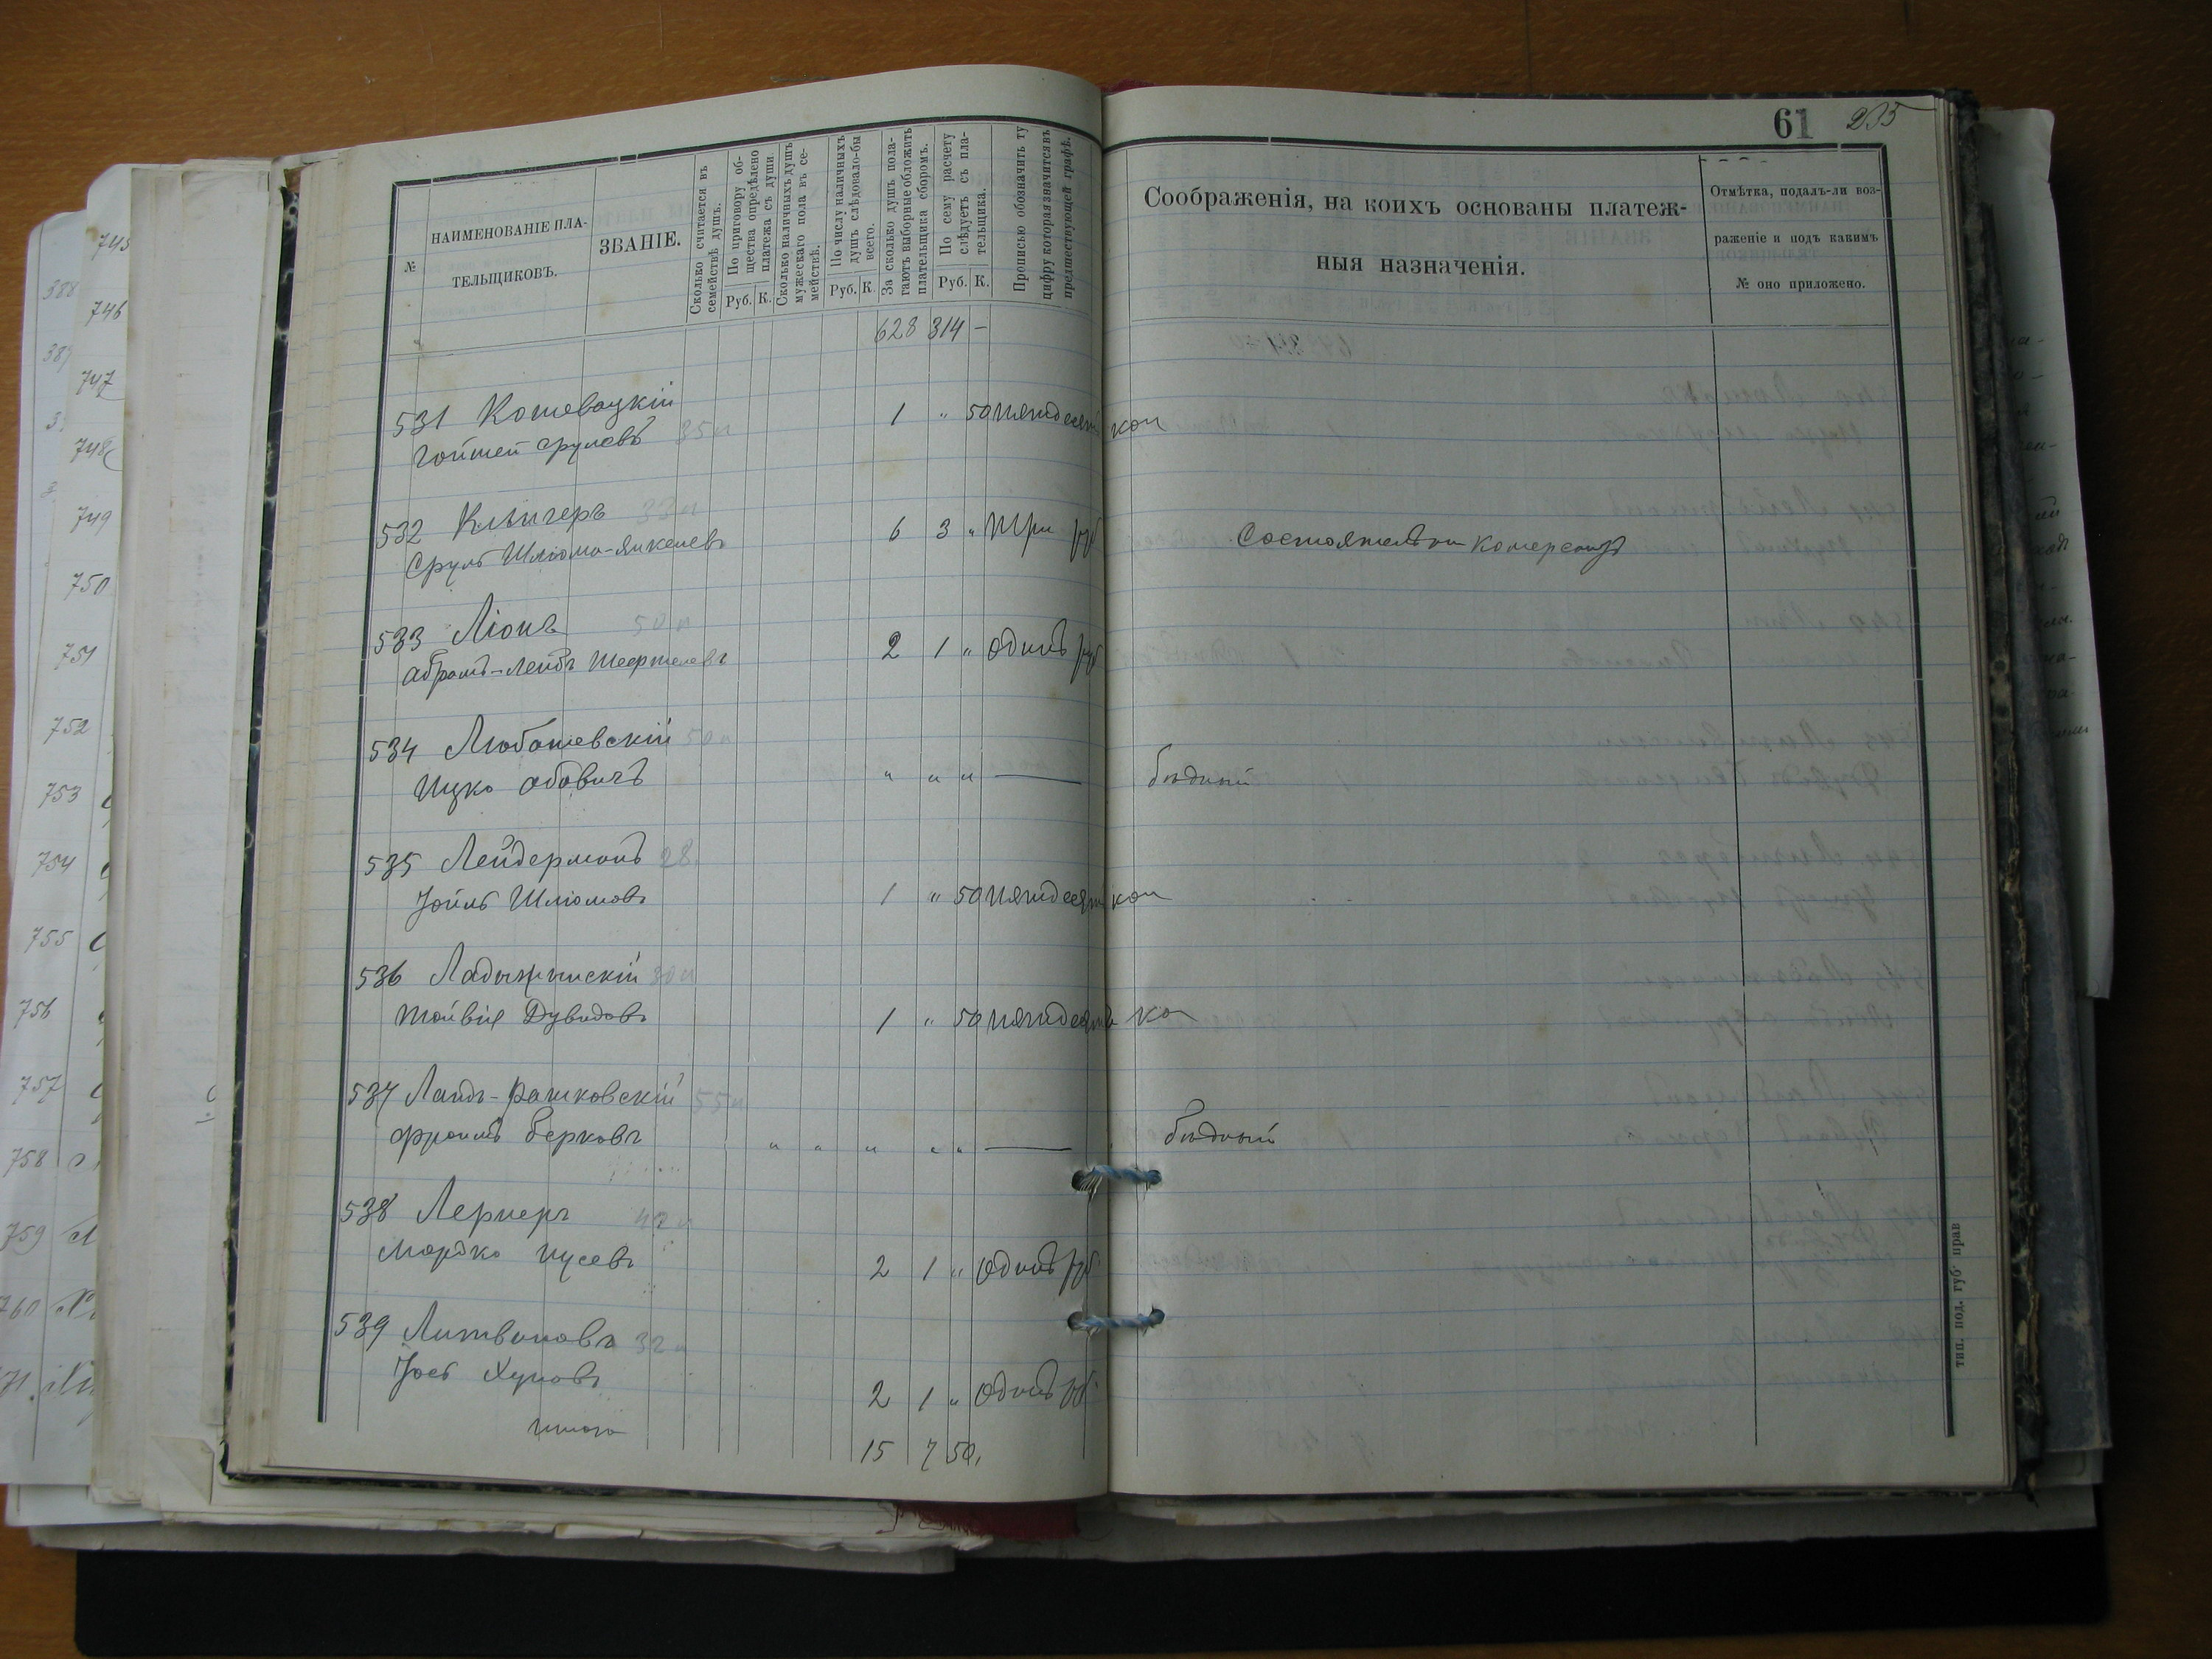 61 235
№
НАИМЕНОВАНІЕ ПЛА-
ТЕЛЬЩИКОВЪ.
ЗВАНІЕ.
Сколько считается въ
семействѣ душъ.
По приговору об-
щества опредѣлено
платежа съ души.
Руб. К.
Сколько наличныхъ душъ
мужескаго пола въ се-
мействѣ.
По числу наличныхъ
душъ слѣдовало-бы
всего.
Руб. К.
За сколько душъ пола-
гаютъ выборные обложить
плательщика сборомъ.
По сему расчету
слѣдуетъ съ пла-
тельщика.
Руб. К.
Прописью обозначить ту
цифру которая значится въ
предшествующей графѣ.
Соображенія, на коихъ основаны платеж-
ныя назначенія.
Отмѣтка, подалъ-ли воз-
раженіе и подъ какимъ
№ оно приложено.
628 314 —
531 Кошевацкій
35 1 " 50 пятдесятъ коп
532 Клигеръ 33
Сруль Шлiома-Янкелевъ 6 3 " Три руб Состоятельный Комерсантъ
533 Ліонъ 50
Абрамъ-Лейбъ 2 1 " Одинъ руб
534 Любашевскій 50
Ицко Абовичъ " " " — бѣдный
535 Лейдерманъ 28
Іойль Шлiомовъ 1 " 50 пятдесятъ коп
536 Ладыжинскій 30
Тойвія Дувидовъ 1 " 50 пятдесятъ ко
537 Ландъ-Рашковскій 55
Фроимъ Берковъ " " " " " — бѣдный
538 Лернеръ
Мордко Нусевъ 2 1 " Одинъ руб
539 Литвиновъ 32
Іосъ Хуновъ 2 1 " Одинъ руб
итого 15 7 50
тип. под. губ. прав
745
746
747
748
749
750
751
752
753
754
755
756
757
758
759
760